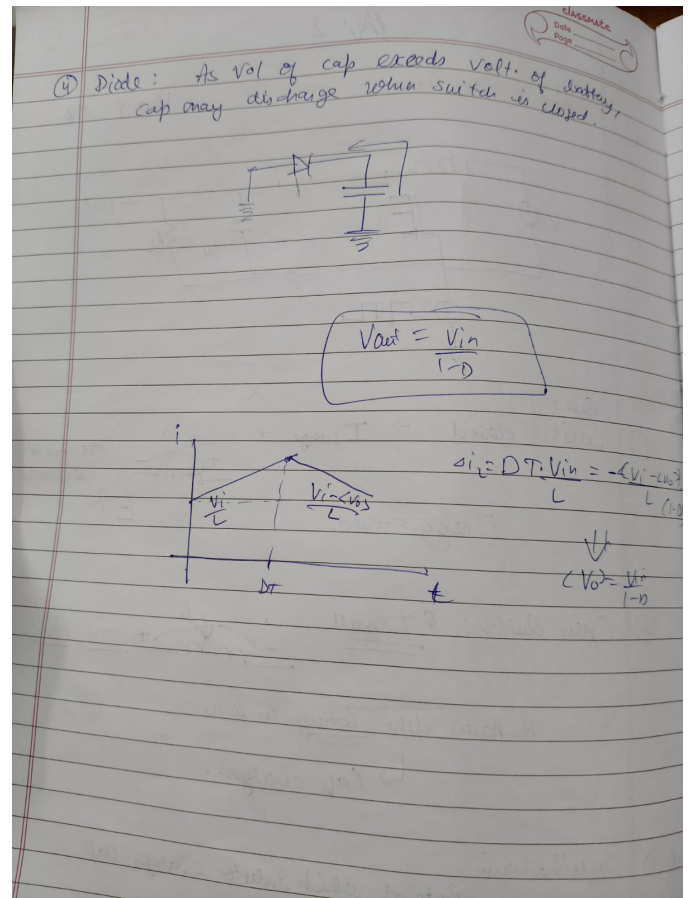 classmate
Date
Page
④ Diode : As Vol of cap exceeds volt. of battery,
cap may discharge when switch is closed.
Vout = Vin / 1-D
i
Vi / L
Vi-<Vo> / L
DT
t
ΔiL = DT.Vin / L = -(Vi-<Vo>) / L (1-D)
⇓
<Vo> = Vin / 1-D